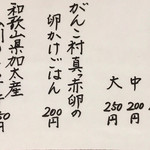 大 250円
中 200
がんこ村真っ赤卵の
卵かけごはん
200円
和歌山県加太産
50円